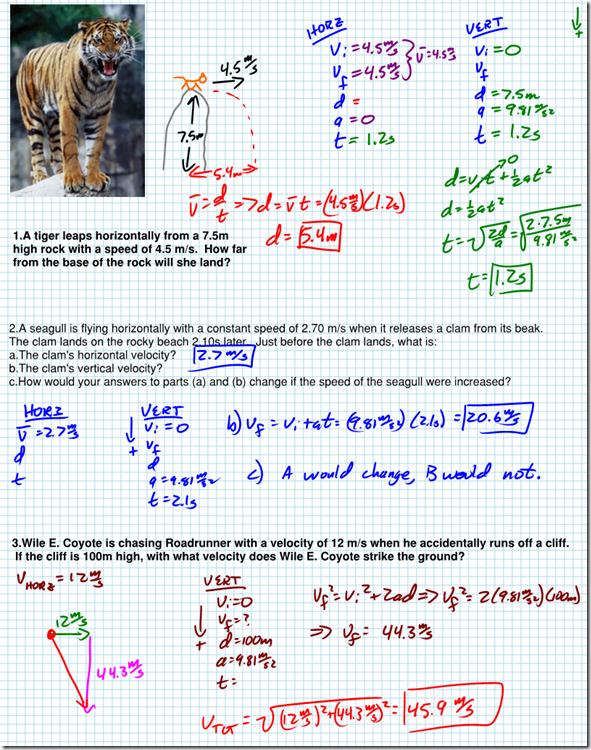 HORZ
Vi = 4.5 m/s
Vf = 4.5 m/s
v̄ = 4.5 m/s
d =
a = 0
t = 1.2s
VERT
Vi = 0
Vf
d = 7.5m
a = 9.81 m/s²
t = 1.2s
+
4.5 m/s
7.5m
5.4m
v̄ = d/t => d = v̄t = (4.5 m/s)(1.2s)
d = 5.4m
d = Vit + ½at²
0
d = ½at²
t = √(2d/a) = √(2·7.5m/9.81 m/s²)
t = 1.2s
1.A tiger leaps horizontally from a 7.5m
high rock with a speed of 4.5 m/s. How far
from the base of the rock will she land?
2.A seagull is flying horizontally with a constant speed of 2.70 m/s when it releases a clam from its beak.
The clam lands on the rocky beach 2.10s later. Just before the clam lands, what is:
a.The clam's horizontal velocity? 2.7 m/s
b.The clam's vertical velocity?
c.How would your answers to parts (a) and (b) change if the speed of the seagull were increased?
HORZ
v̄ = 2.7 m/s
d
t
VERT
Vi = 0
+ Vf
d
a = 9.81 m/s²
t = 2.1s
b) Vf = Vi + at = (9.81 m/s²)(2.1s) = 20.6 m/s
c) A would change, B would not.
3.Wile E. Coyote is chasing Roadrunner with a velocity of 12 m/s when he accidentally runs off a cliff.
If the cliff is 100m high, with what velocity does Wile E. Coyote strike the ground?
VHORZ = 12 m/s
12 m/s
44.3 m/s
VERT
Vi = 0
Vf = ?
+ d = 100m
a = 9.81 m/s²
t =
Vf² = Vi² + 2ad => Vf² = 2(9.81 m/s²)(100m)
=> Vf = 44.3 m/s
VTOT = √((12 m/s)² + (44.3 m/s)²) = 45.9 m/s